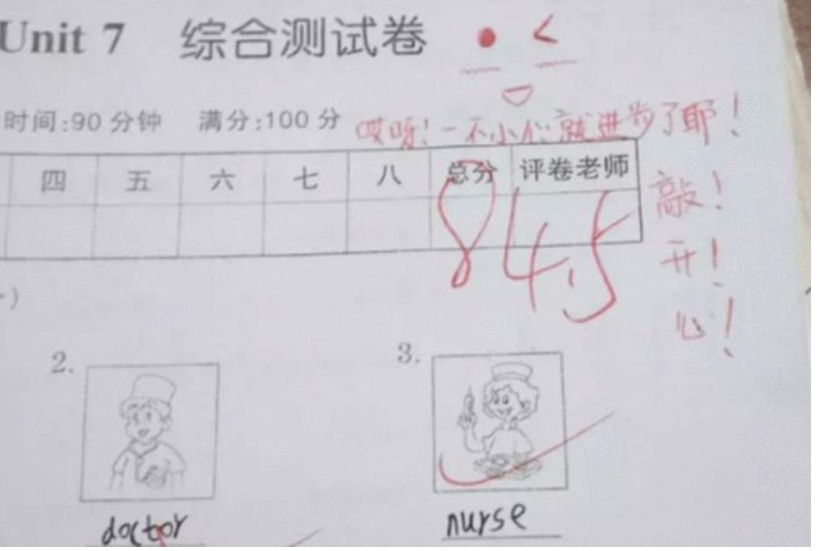 Unit 7 综合测试卷
时间:90分钟 满分:100分
哎呀!一不小心就进步了耶!
四 五 六 七 八 总分 评卷老师
84.5
敲!
开!
心!
2.
3.
doctor
nurse